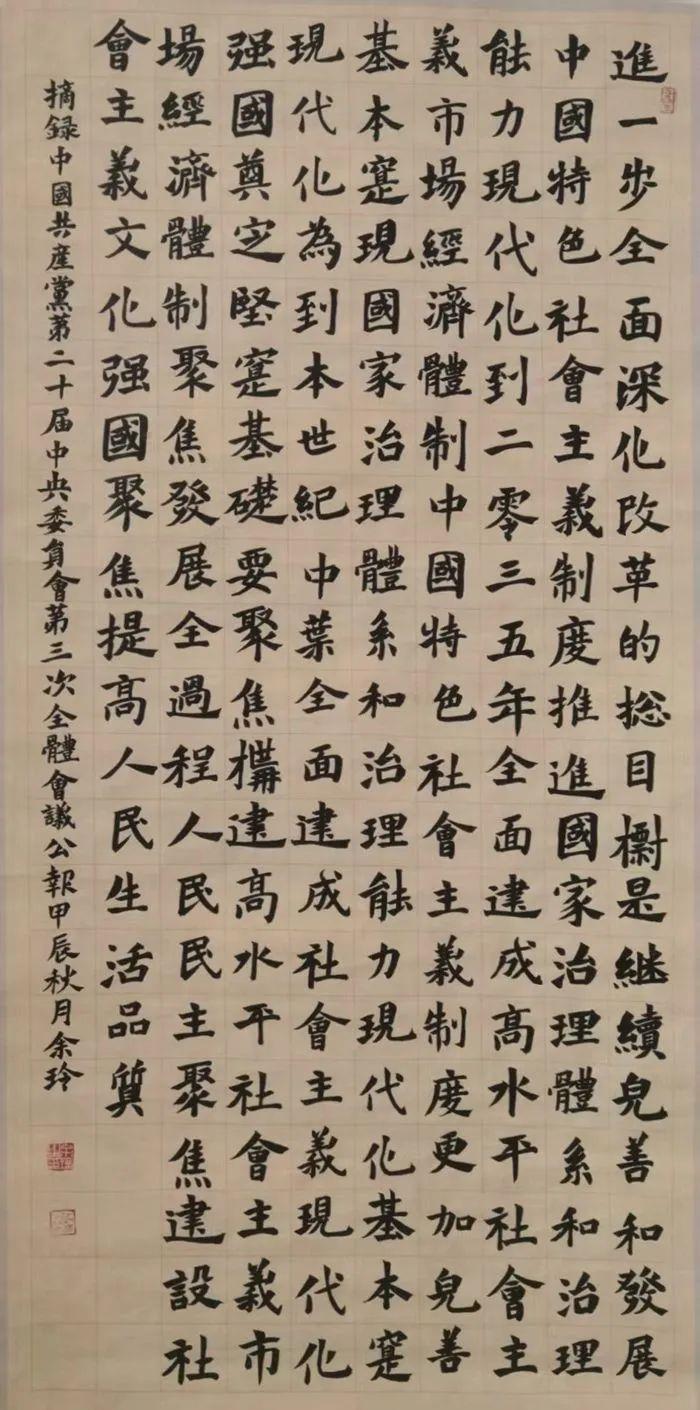 進一步全面深化改革的捴目標是継續完善和發展
中國特色社會主義制度推進國家治理體系和治理
能力現代化到二零三五年全面建成高水平社會主
義市場經濟體制中國特色社會主義制度更加完善
基本寔現國家治理體系和治理能力現代化基本寔
現代化為到本世紀中葉全面建成社會主義現代化
强國奠定堅寔基礎要聚焦構建高水平社會主義市
場經濟體制聚焦發展全過程人民民主聚焦建設社
會主義文化强國聚焦提高人民生活品質
摘録中國共産黨第二十届中央委員會第三次全體會議公報甲辰秋月余玲